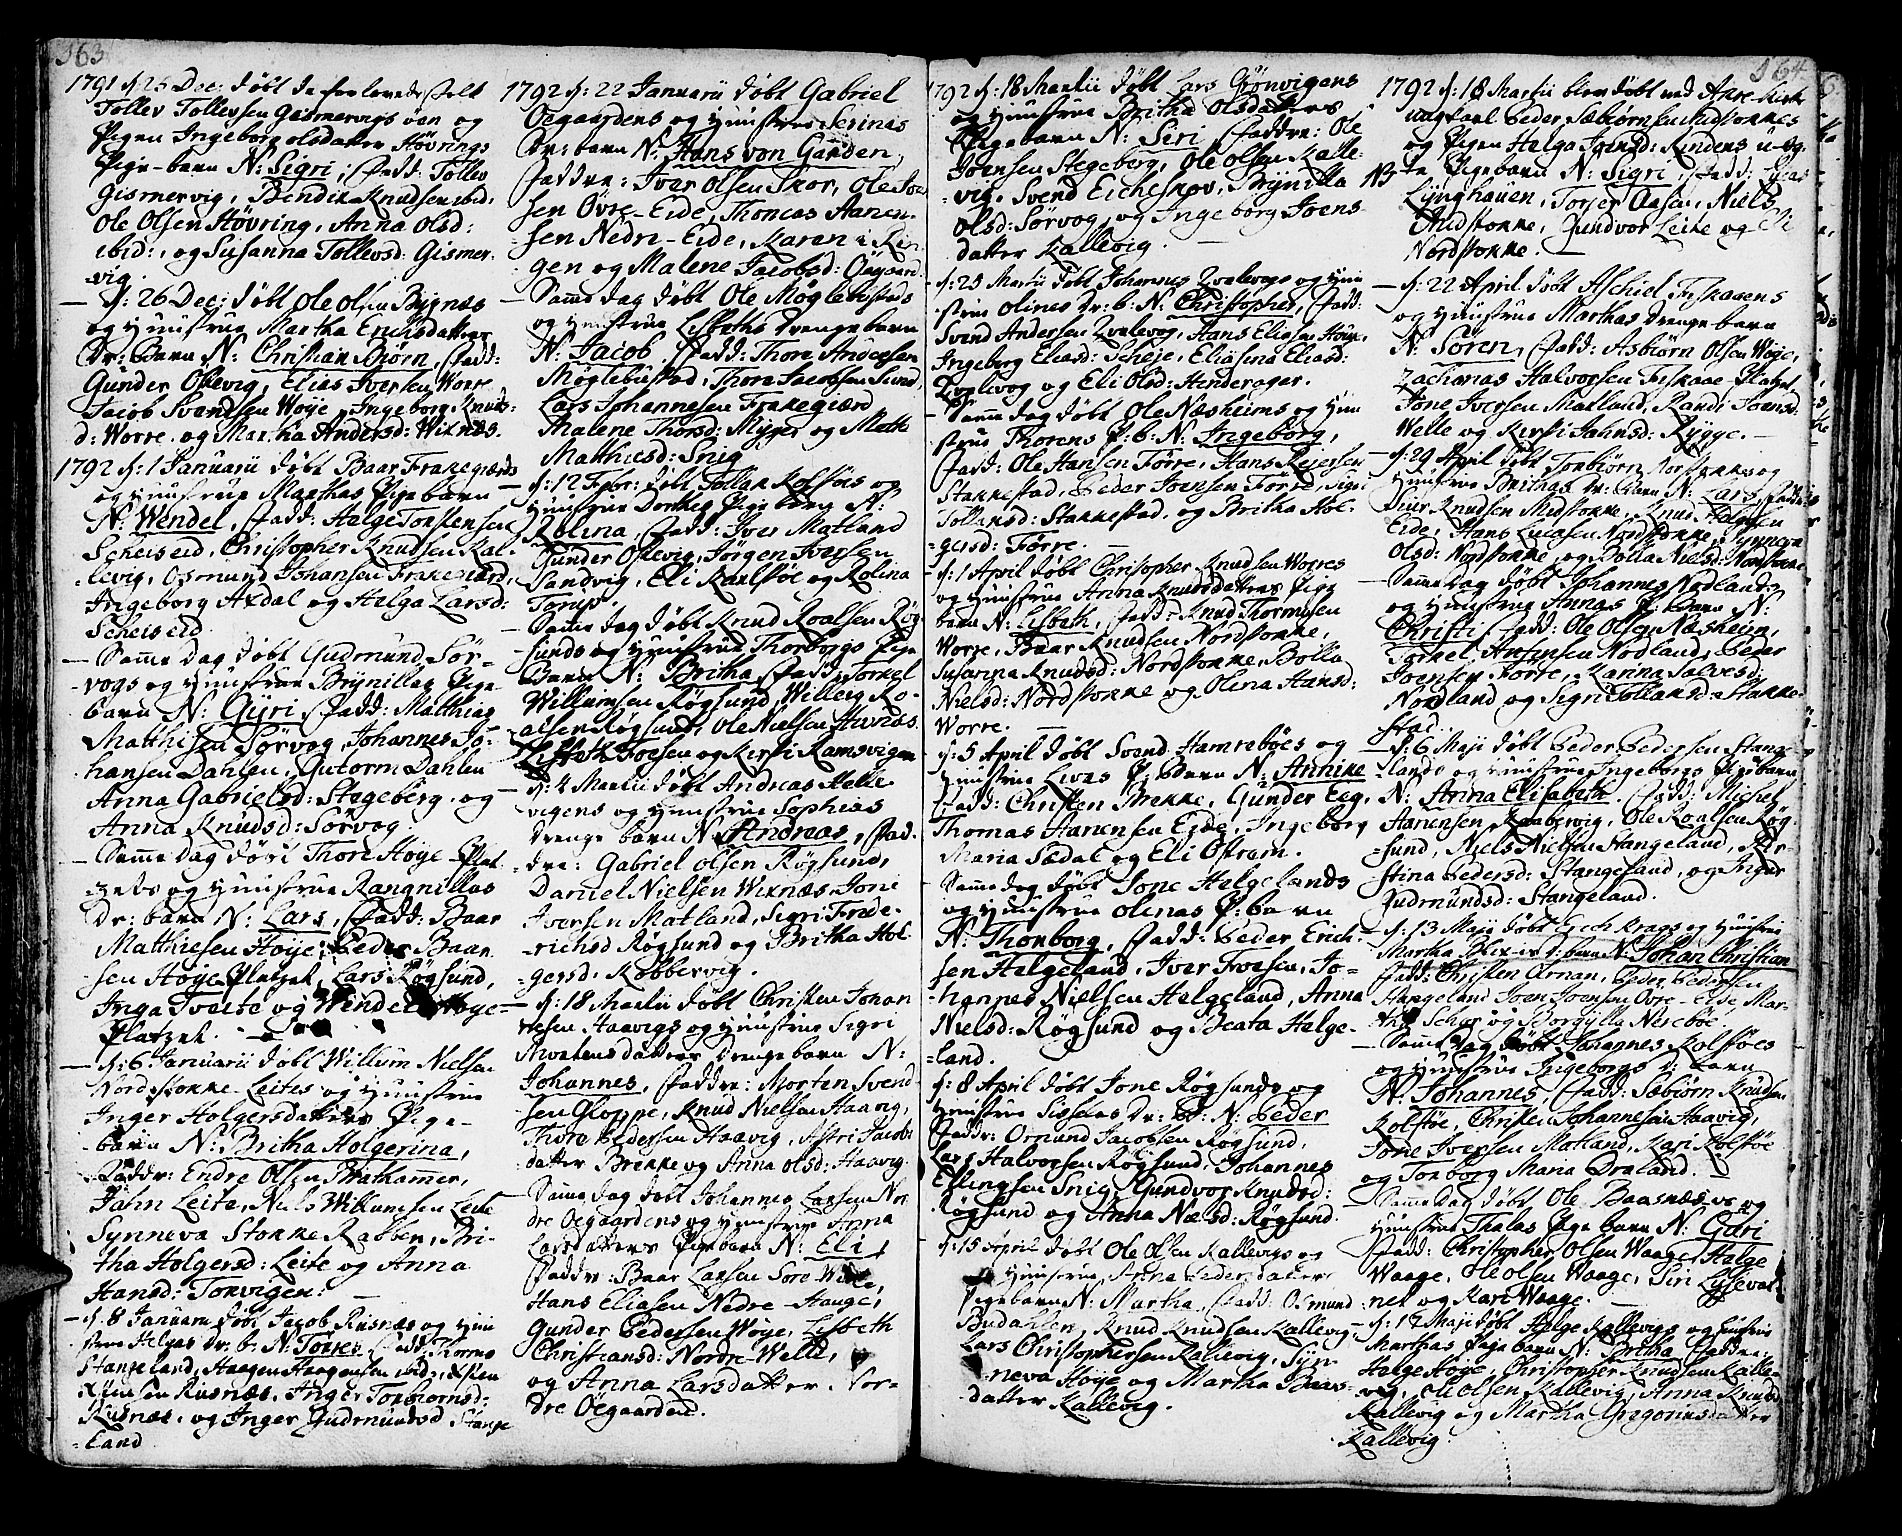 163
1791 d: 25 Dec: døbt de forlovedes
Tollev Tollevsen Gismervigs øen og
Pigen Ingeborg olsdatter Høvrings
Pige-barn N: Sigri, Fadd: Tollev
Gismervig, Bendix Knudsen ibid,
Ole Olsen Høvring, Anna Olsd:
ibid:, og Susanna Tollevsd: Gismer-
vig.
— d: 26 Dec: døbt Ole Olsen Bygnæs
og Hunstrue Martha Erichsdatter
Dr: Barn N: Christian Biørn, Fadd:
Gunder Ostevig, Elias Iversen Worre
Jacob Svendsen Wøye, Ingeborg Knuds-
d: Worre. og Martha Andersd: Wixnæs.
1792 d: 1 Januarii døbt Baar Frakegiærds
og Hunstrue Marthas Pige barn
N: Wendel, Fadd: Helge Torstensen
Scheiseid, Christopher Knudsen Kal-
levig, Osmund Johansen Frakegiærd,
Ingeborg Axdal og Helga Larsd:
Scheiseid.
— Samme dag døbt Gudmund Sør-
vogs og Hunstrue Brynillas Pige
barn N: Gyri, Fadd: Matthias
Matthisen Sørvog, Johannes Jo-
hansen Dahlen, Gutorm Dahlen
Anna Gabrielsd: Stegeberg. og
Anna Knudsd: Sørvog.
— Samme dag døbt Thore Høye Plat-
zets og Hunstrue Rangnillas
Dr: barn N: Lars, Fadd: Baar
Matthiesen Høye, Peder Baar-
sen Høye Platzet, Lars Røgsund,
Inga Tveite og Wendel Høye-
Platzet.
— d: 6 Januarii døbt Willum Nielsen
Nordstokke-Leites og Hunstrue
Inger Holgersdatters Pige-
barn N: Britha Holgerina,
Faddr: Endre Olsen Brathamer,
Jahn Leite, Niels Willumsen Leite
Synneva Stokke Rabben, Bri-
tha Holgersd: Leite og Anna
Hansd: Torvigen:
— d: 8 Januarii døbt Jacob Rusnæs og Hun
strue Helgas dr: b: N: Tørres, Fadd: Thormo
Stangeland, Haagen Haagensen ibid,
Rusnæs, Inger Torbiornsd:
Rusnæs, og Inger Gudmundsd: Stange
-land
1792 d: 22 Januarii døbt Gabriel
Oegaardens og Hunstrue Serinas
Dr: barn N: Hans von Gunden,
Faddr: Iver Olsen Skor, Ole
sen Øvre-Eide, Thomas Aanen-
sen Nedre-Eide, Karen i Rin-
gen og Malene Jacobsd: Oegaard.
— Samme dag døbt Ole Møglebustads
og Hunstrue Lisbeths drenge barn
N: Jacob, Fadd: Thore Andersen
Møglebustad, Thore Jacobsen
Lars Johannesen Frakegiærd
Malene Thorsd: Myger og Mette
Matthiesd: Snig
— d: 12 Febr: døbt Tollak Kolstøs og
Hunstrue Dorthes Pige barn N:
Rolina, Fadd: Iver Matland
Gunder Ostevig, Jørgen Iversen
Sandvig, Eli Karlstøe og Rolina
Torup.
— Samme dag døbt Knud Roalsen Røg-
sunds og Hunstrue Thorborgs Pige
Barn N: Britha, Fadd: Torkel
Willumsen Røgsund, Willem Ro-
alsen Røgsund, Ole Nielsen
Lisbeth Joesen og Kirsti Ramsvigen
— d: 4 Martii døbt Andreas Helle-
vigens og Hunstrue Sophias
drenge barn N: Andreas, Fad-
dre: Gabriel Olsen Røgsund,
Daniel Nielsen Wixnæs, Jone
Iversen Matland, Sigri Frede-
richsd Røgsund og Britha Hol-
gersd. Kobbervig.
— d: 18 Martii døbt Christen Johan-
nesen Haavigs og Hunstrue Sigri
datters drenge barn N:
Johannes, Faddr: Morten Svend
sen Gloppe, Knud Nielsen Haavig,
Thore Pedersen Haavig, Astri Jacobs
datter Brekke og Anna Olsd: Haavig.
— Samme dag døbt Johannes Larsen Nor
dre Oegaardens og Hunstrue Anna
Larsdatters Pige barn N: Eli,
Faddr: Baar Larsen Søre-Welle,
Hans Eliasen Nedre-Hauge,
Gunder Pedersen Wøye, Lisbeth
Christiansd: Nordre-Welle,
og Anna Larsdatter Nor-
dre Oegaarden.
164
1792 d: 18 Martii døbt Lars Grønvigens
og Hunstrue Britha Olsdatters
Pige barn N: Siri, Faddr: Ole
Joensen Stegeberg, Ole Olsen Kalle-
vig, Svend Eicheskov, Brynilla
Olsd: Sørvog, og Ingeborg Joens-
datter Kallevig.
— d: 25 Martii døbt Johannes Zvalevogs og Hun
strue Olines dr: b: N: Christopher, Fadd:
Svend Andersen Zvalevog, Hans Eliesen
Ingeborg Eliasd: Scheje, Eliasina Eliasd:
Zvalevog og Eli Olsd: Henderager.
— Samme dag døbt Ole Næsheims og Hun
strue Thorens P: b: N: Ingeborg,
Fadd: Ole Hansen Førre, Hans Reiersen
Stakkestad, Peder Joensen Førre, Sigri
Tollansd: Stakkestad. og Britha Hol-
gersd: Førre.
— d: 1 April døbt Christopher Knudsen Worres
og Hunstrue Anna Knudsdatters Pige
barn N: Lisbeth, Fadd: Knud Thormosen
Worre, Baar Knudsen Nordstokke,
Susanna Knudsd: Nordstokke, Bolla
Nielsd: Nordstokke og Olina Hansd:
Worre.
— d: 5 April døbt Svend Hamrebøes og
Hunstrue Livas P: Barn N: Annike
Fadd: Christen Brekke, Gunder Eeg,
Thomas Aanensen Eide, Ingeborg
Maria Sædal og Eli Østrem.
— Samme dag døbt Jone Helgelands
og Hunstrue Olenas P: barn
N: Thorborg, Fadd: Peder Erich-
sen Helgeland, Iver Troesen, Jo-
hannes Nielsen Helgeland, Anna
Nielsd: Røgsund og Beata Helge-
-land.
d: 8 April døbt Jone Røgsunds og
Hunstrue Sisselas dr: B: N: Peder
Faddr: Ormund Jacobsen Røgsund,
Lars Halvorsen Røgsund, Johannes
Ellingsen Snig, Gundvor Knudsd:
Røgsund og Anna Nælsd: Røgsund.
d: 15 April døbt Ole Olsen Kallevigs og
Hunstrue Anna Pedersdatters
Pige barn N: Martha, Fadd: Osmund
Budahlen, Knud Knudsen Kallevig,
Lars Christophersen Kallevig, Syn-
neva Høye og Martha Baars-
datter Kallevig.
1792 d: 18 Martii blev døbt ved Avre-Kirke
Peder Sæbiørnsen Midstokkes
og Pigen Helga Joensd: Rindens u-æg-
NB te Pige barn N: Sigri, Fadd: Lucas
Lynghauen, Torger Aasen, Niels
Midstokke, Gundvor Leite og Eli
Nordstokke. —
— d: 22 April døbt Aschiel Fiskaaens
og Hunstrue Marthas drenge barn
N: Søren, Fadd: Asbiørn Olsen Wøye,
Zacharias Halvorsen Fiskaae Platzet,
Jone Iversen Matland, Randi Joensd:
Welle og Kirsti Jahnsd: Rygge. —
— d: 29 April døbt Torbiørn Norstokkes og
Hunstrue Brithas dr: Barn N: Lars, Fadd:
Siur Knudsen Midstokke, Knud Helgesen
Eide, Hans Lucasen Nordstokke, Synneva
Olsd: Nordstokke, og Bolla Nielsd: Nordstokke
— Samme dag døbt Johannes Nodlands
og Hunstrue Annas P: Barn N:
Christi, Fadd: Ole Olsen Næsheim,
Torkel Anfinsen Nodland, Peder
Joensen Førre, Karina Salvesd:
Nordland og Sigri Tollansd: Stakke-
stad.
— d: 6 Maji døbt Peder Pedersen Stange-
lands og Hunstrue Ingeborgs Pige barn
N: Anna Elisabeth. Fadd: Michel
Hansen Kaabervig, Ole Roalsen Røg-
sund, Niels Nielsen Stangeland, Kir-
stina Pedersd: Stangeland, og Inger
Gudmundsd: Stangeland.
— d: 13 Maji døbt Erich Krags og Hunstrue
Martha D: barn N: Johan Christian
Fadd: Christen Ørnan, Peder Pedersen
Stangeland Joen Joensen Øvre-Eide, Mar-
tha og Borgylla Nesebøe.
— Samme dag døbt Johannes Kolstøes
og Hunstrue Ingeborgs D: barn
N: Johannes, Fadd: Sæbiørn Knudsen
Kolstøe, Christen Johannesen Haavig,
Jone Iversen Matland, Kari Kolstøe
og Torborg Maria Draland.
— Samme dag døbt Ole Baasnæsve og
Hunstrue Thalas Pige barn N: Guri
Fadd: Christopher Olsen Waage, Helge
Waage, Ole Olsen Waage, Siri
net og Kari Waage.
— d: 17 Maji døbt Helge Kallevigs og Hunstrue
Marthas Pige barn N: Britha, Faddr:
Helge Høye, Christopher Knudsen Kalle-
vig, Ole Olsen Kallevig, Anna Knudsd
Kallevig og Martha Gregoriusdatter
Kallevig.